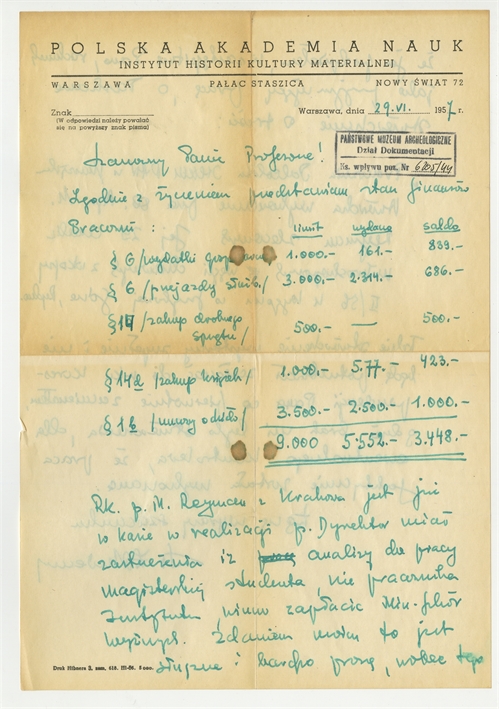 POLSKA AKADEMIA NAUK
INSTYTUT HISTORII KULTURY MATERIALNEJ
WARSZAWA PAŁAC STASZICA NOWY ŚWIAT 72
Znak
(W odpowiedzi należy powołać
się na powyższy znak pisma)
Warszawa, dnia 29.VI. 1957 r.
PAŃSTWOWE MUZEUM ARCHEOLOGICZNE
Dział Dokumentacji
Ks. wpływu poz. Nr
Szanowny Panie Profesorze!
Zgodnie z życzeniem przedstawiam stan finansów
Pracowni : limit wydano saldo
§ 6 /wydatki 1.000.- 161.- 839.-
§ 6 /przejazdy służb./ 3.000.- 2.314.- 686.-
§ 14 /zakup drobnego
sprzętu/ 500.- — 500.-
§ 14d /zakup książek/ 1.000.- 577.- 423.-
§ 1b /umowy o dzieło/ 3.500.- 2.500.- 1.000.-
9.000 5.552.- 3.448.-
Rk. p. M. z Krakowa jest już
w kasie w realizacji p. Dyrektor miał
zastrzeżenia iż analizy do pracy
magisterskiej studenta, nie pracownika
Instytutu, winno zapłacić Min. Szkół
Wyższych. Zdaniem moim to jest
słuszne i bardzo proszę, wobec tego
Druk Hibnera 2, zam. 618. III-56. 5 000.